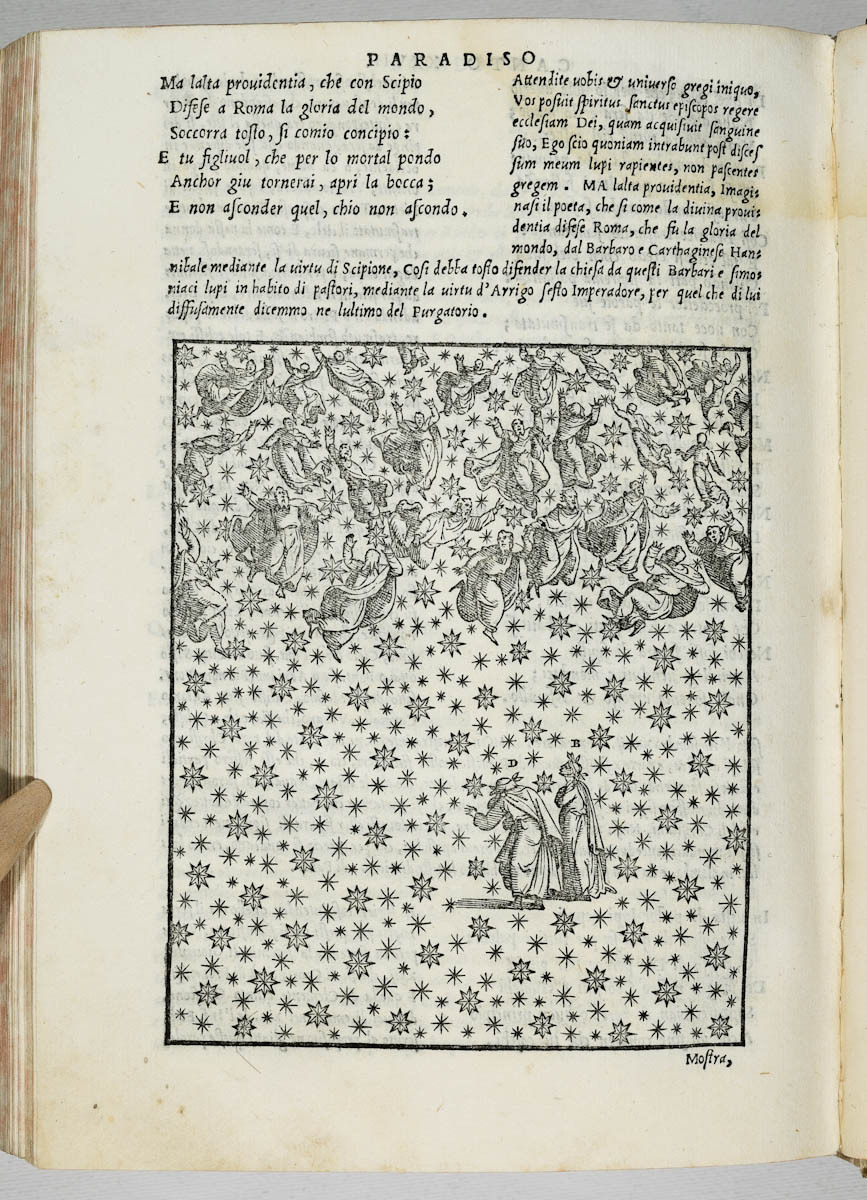 PARADISO
Ma lalta prouidentia, che con Scipio
Difese a Roma la gloria del mondo,
Soccorra tosto, si comio concipio:
E tu figliuol, che per lo mortal pondo
Anchor giu tornerai, apri la bocca;
E non asconder quel, chio non ascondo.
Attendite uobis & uniuerso gregi iniquo,
Vos posuit spiritus sanctus episcopos regere
ecclesiam Dei, quam acquisiuit sanguine
suo, Ego scio quoniam intrabunt post disces
sum meum lupi rapientes, non pascentes
gregem. MA lalta prouidentia, Imagi-
nasi il poeta, che si come la diuina proui-
dentia difese Roma, che fu la gloria del
mondo, dal Barbaro e Carthaginese Han-
nibale mediante la uirtu di Scipione, Cosi debba tosto difender la chiesa da questi Barbari e simo-
niaci lupi in habito di pastori, mediante la uirtu d'Arrigo sesto Imperadore, per quel che di lui
diffusamente dicemmo ne lultimo del Purgatorio.
B
D
Mostra,